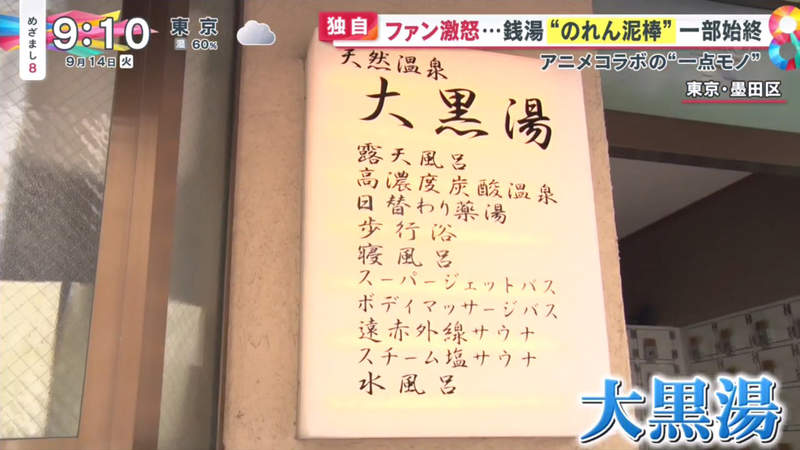 めざまし8
9:10
9月14日 火
東京
湿 60%
独自 ファン激怒…銭湯“のれん泥棒”一部始終
アニメコラボの“一点モノ”
東京・墨田区
天然温泉
大黒湯
露天風呂
高濃度炭酸温泉
日替わり薬湯
歩行浴
寝風呂
スーパージェットバス
ボディマッサージバス
遠赤外線サウナ
スチーム塩サウナ
水風呂
大黒湯